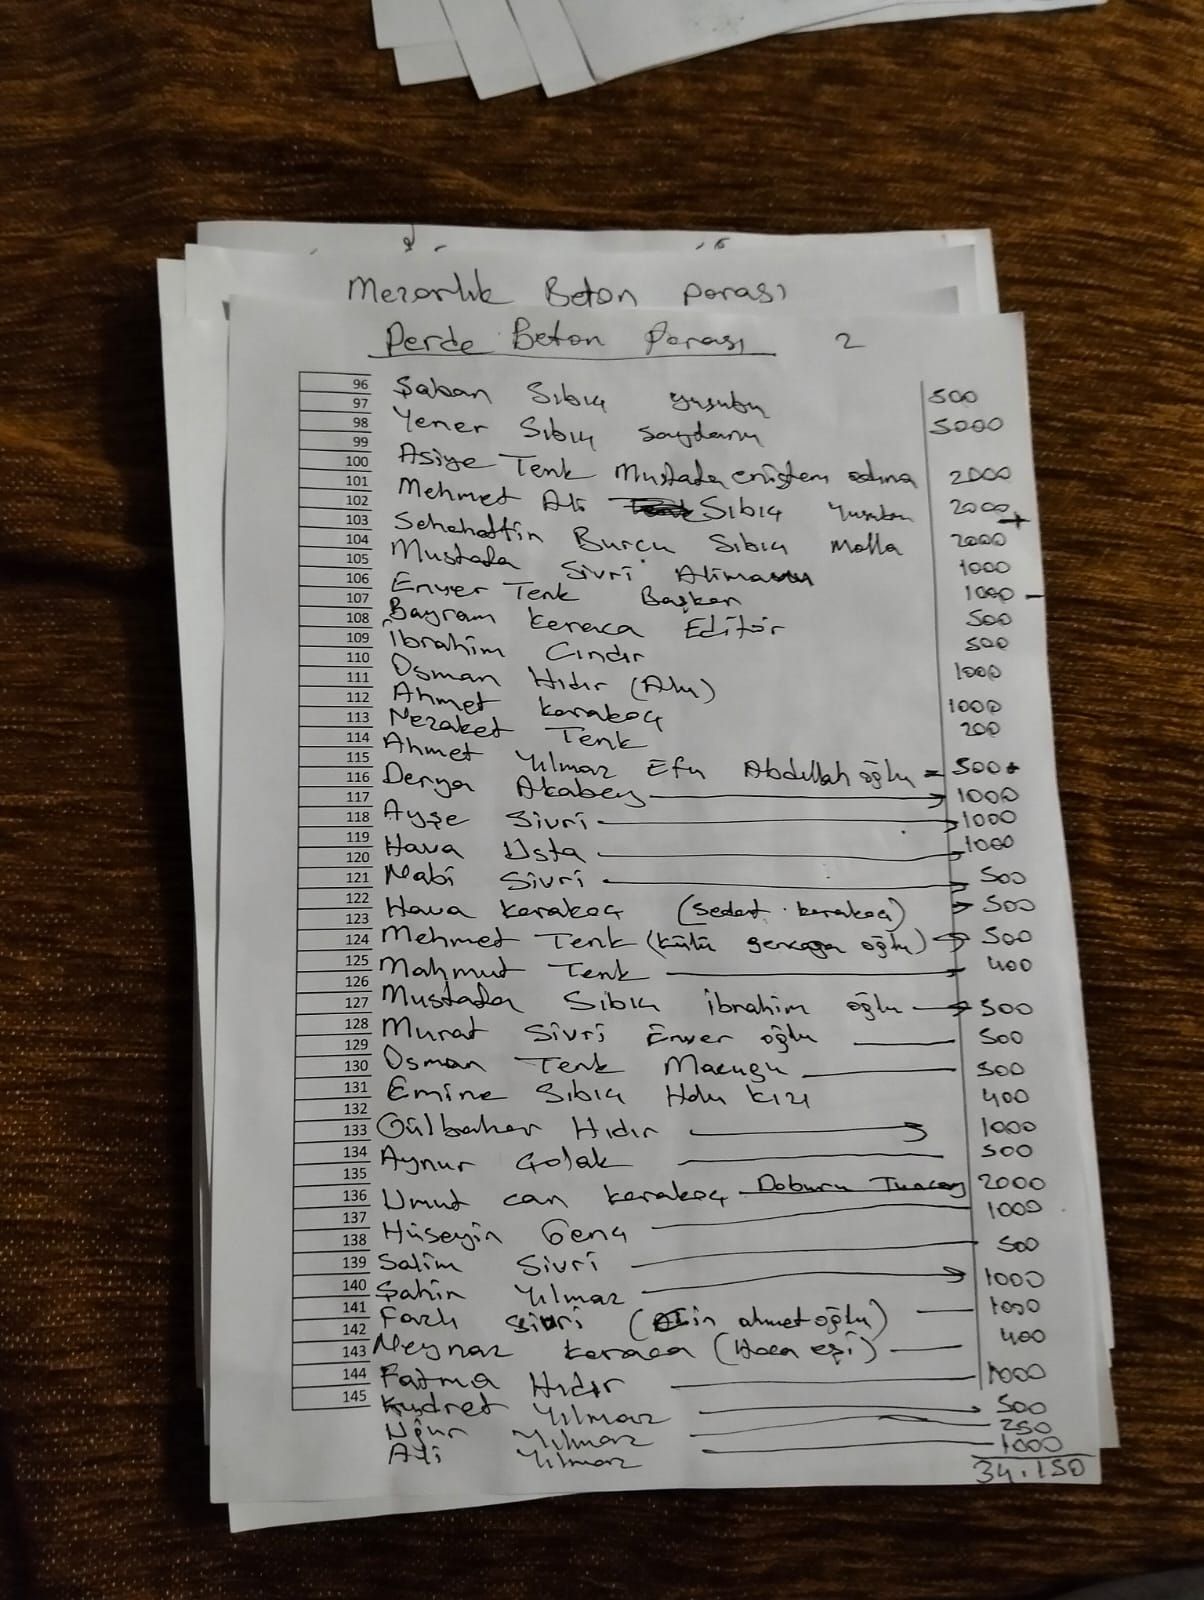 Mezarlık Beton parası
Perde Beton Parası 2
96
97
98
99
100
101
102
103
104
105
106
107
108
109
110
111
112
113
114
115
116
117
118
119
120
121
122
123
124
125
126
127
128
129
130
131
132
133
134
135
136
137
138
139
140
141
142
143
144
145
Şaban Sıbıç yusubu 500
Yener Sıbıç 5000
Asiye Tenk Mustafa eniştem adına 2000
Mehmet Ali Sıbıç 2000
Sehahattin Burcu Sıbıç Molla 2000
Mustafa Sivri 1000
Enver Tenk Başkan 1000
Bayram Keraca Editör 500
İbrahim Cındır 500
Osman Hıdır (Alu) 1000
Ahmet Karakoç 1000
Nezaket Tenk 200
Ahmet Yılmaz Efu Abdullah oğlu = 500
Derya Akabey 1000
Ayşe Sivri 1000
Hava Usta 1000
Nabi Sivri 500
Hava Karakoç (Sedat karakoç) 500
Mehmet Tenk (kütü oğlu) 500
Mahmut Tenk 400
Mustafa Sıbıç ibrahim oğlu 500
Murat Sivri Enver oğlu 500
Osman Tenk 500
Emine Sıbıç kızı 400
Gülbahar Hıdır 1000
Aynur Çolak 500
Umut can karakoç 2000
Hüseyin Genç 1000
Salim Sivri 500
Şahin Yılmaz 1000
Fazlı Sivri ( ahmet oğlu) 1000
Neynaz Karaca (Hoca eşi) 400
Fatma Hıdır 1000
Kudret Yılmaz 500
Uğur Yılmaz 250
Ali Yılmaz 1000
34.150